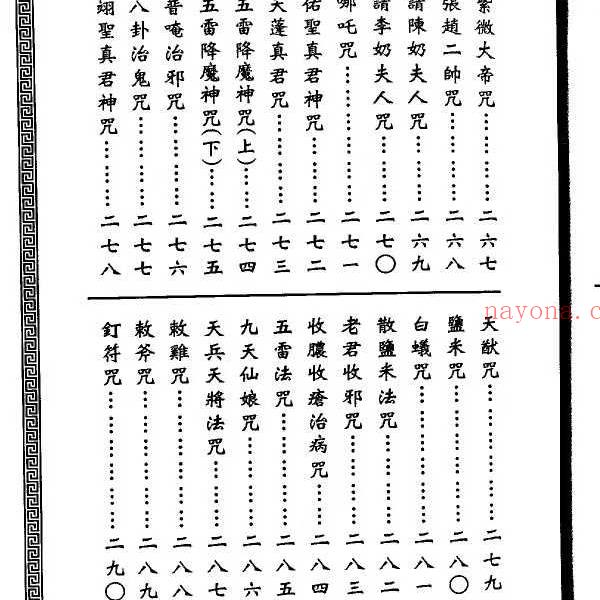 紫微大帝咒……………二六七
張趙二帥咒……………二六八
請陳奶夫人咒…………二六九
請李奶夫人咒…………二七〇
哪吒咒…………………二七一
佑聖真君神咒…………二七二
天蓬真君咒……………二七三
五雷降魔神咒(上)……二七四
五雷降魔神咒(下)……二七五
普唵治邪咒……………二七六
八卦治鬼咒……………二七七
翊聖真君神咒…………二七八
天猷咒…………………二七九
鹽米咒…………………二八〇
白蟻咒…………………二八一
散鹽米法咒……………二八二
老君收邪咒……………二八三
收膿收瘡治病咒………二八四
五雷法咒………………二八五
九天仙娘咒……………二八六
天兵天將法咒…………二八七
敕雞咒…………………二八八
敕斧咒…………………二八九
釘符咒…………………二九〇
nayona.c